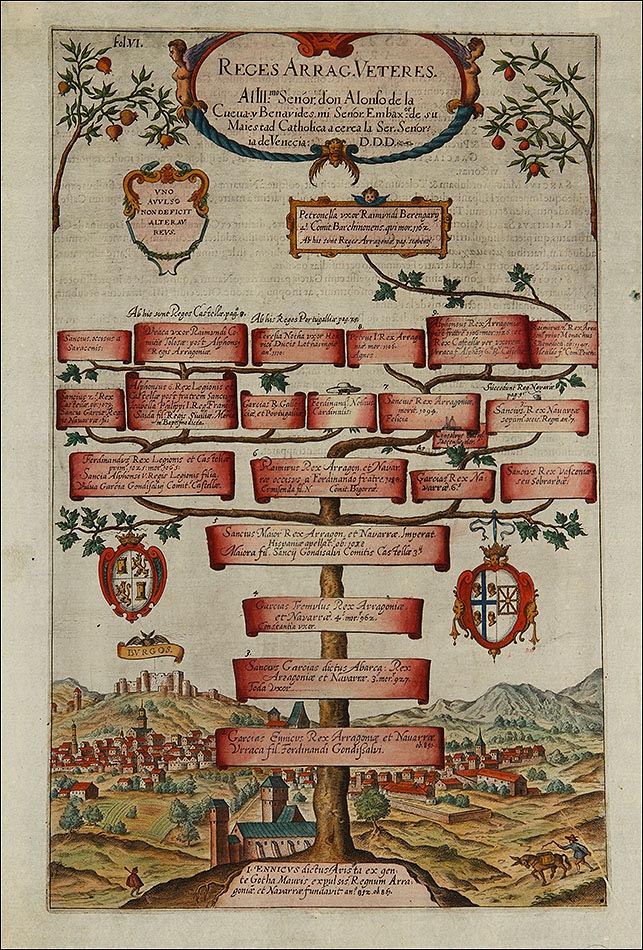 fol. VI.
REGES ARRAG. VETERES.
Al Ill.mo Señor, don Alonso de la
Cueua, y Benavides, mi Señor, Embax.or de su
Maiestad Catholica acerca la Ser. Señor-
ia de Venecia: D.D.D.
VNO
AVVLSO
NON DEFICIT
ALTER AV
REVS.
Petronella vxor Raimundi Berengarij
Comit. Barchinonens. qui mor. 1162.
Ab his sunt Reges Arragoniæ, pag. sequenti
Ab hic sunt Reges Castellæ, pag. 8.
Ab his Reges Portugalliæ, pag.
Sancius, occisus a
Saracenis.
Vraca vxor Raimundi Co
mitis Tolosæ: post Alphonsi
Regis Arragoniæ.
Teresia Notha vxor Hen
rici Ducis Lotharingiæ
an. 1110.
8.
Petrus I. Rex Arrago
niæ mor. 1106.
Agnes.
9.
Alphonsus Rex Arragoniæ
Rex Castellæ per vxorem
Raimirus 2. Rex Arra
Succedunt Reg. Navarræ
Sancius 2. Rex
Castellæ ob. 1073.
Sancia Garciæ Regis
de Navarræ fil.
Alphonsus 6. Rex Legionis et
Castellæ post fratrem Sancij
Isabella Philippi I. Reg. Franc.
Zaida fil. Regis Siuillæ, Maria
in Baptismo dicta.
Garcias R. Gallæ
ciæ et Portugalliæ.
Ferdinand. Nothus
Cardinalis.
7.
Sancius Rex Arragoniæ,
morit. 1094.
Felicia
Sancius, Rex Navarræ
Ferdinandus Rex Legionis et Castellæ
prim. 1025. mor. 1065.
Sancia Alphonsi V. Regis Legionis filia.
Vidua Garcia Gondisalvi Comit. Castellæ.
6
Raimirus Rex Arragon. et Navar
ræ occisus a Ferdinando fratre,
Comit. Bigorræ.
Garcias Rex Na
varræ 6.s
Sancius Rex Vasconiæ
seu Sobrarbæ.
5
Sancius Maior Rex Arragon, et Navarræ, Imperat.
Hispaniæ apellat. ob.
Maiora fil. Sancij Gondisalvi Comitis Castellæ 3.s
4
Garcias Tremulus Rex Arragoniæ,
et Navarræ 4. mor. 962.
Constantia vxor.
BVRGOS.
3
Sancius Garcias dictus Abarca: Rex
Arragoniæ et Navarræ 3. mor. 927.
Toda vxor
Garcias Ennicus Rex Arragoniæ et Navarræ
Vrraca fil. Ferdinandi Gondisalvi.
I. ENNICVS dictus Avista ex gen-
te Gotha Mauris expulsis, Regnum Arra-
goniæ, et Navarræ fundavit